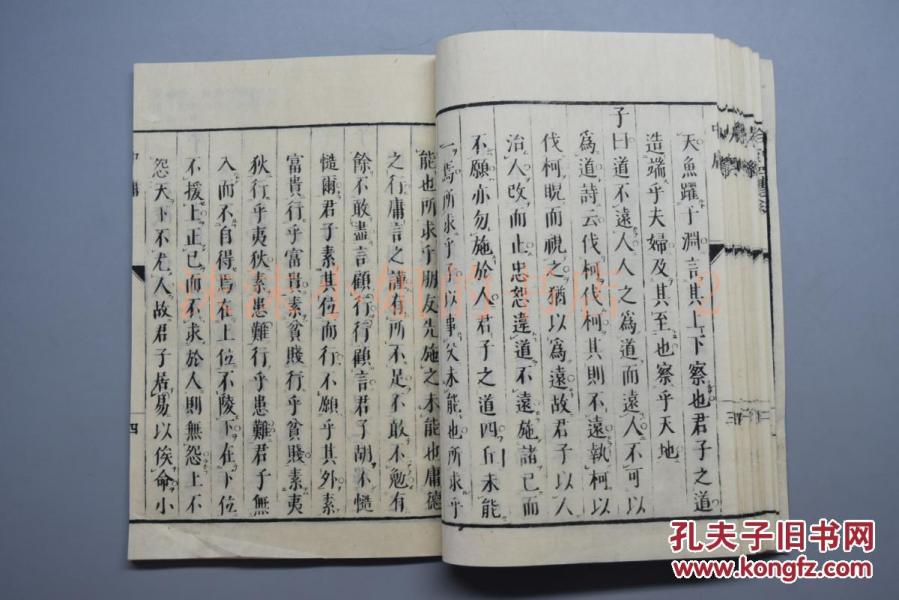 天魚躍于淵言其上下察也君子之道
造端乎夫婦及其至也察乎天地
子曰道不遠人人之為道而遠人不可以
為道詩云伐柯伐柯其則不遠執柯以
伐柯睨而視之猶以為遠故君子以人
治人改而止忠恕違道不遠施諸己而
不願亦勿施於人君子之道四丘未能
一焉所求乎子以事父未能也所求乎
能也所求乎朋友先施之未能也庸德
之行庸言之謹有所不足不敢不勉有
餘不敢盡言顧行行顧言君子胡不慥
慥爾君子素其位而行不願乎其外素
富貴行乎富貴素貧賤行乎貧賤素夷
狄行乎夷狄素患難行乎患難君子無
入而不自得焉在上位不陵下在下位
不援上正己而不求於人則無怨上不
怨天下不尤人故君子居易以俟命小
四
孔夫子旧书网
www.kongfz.com